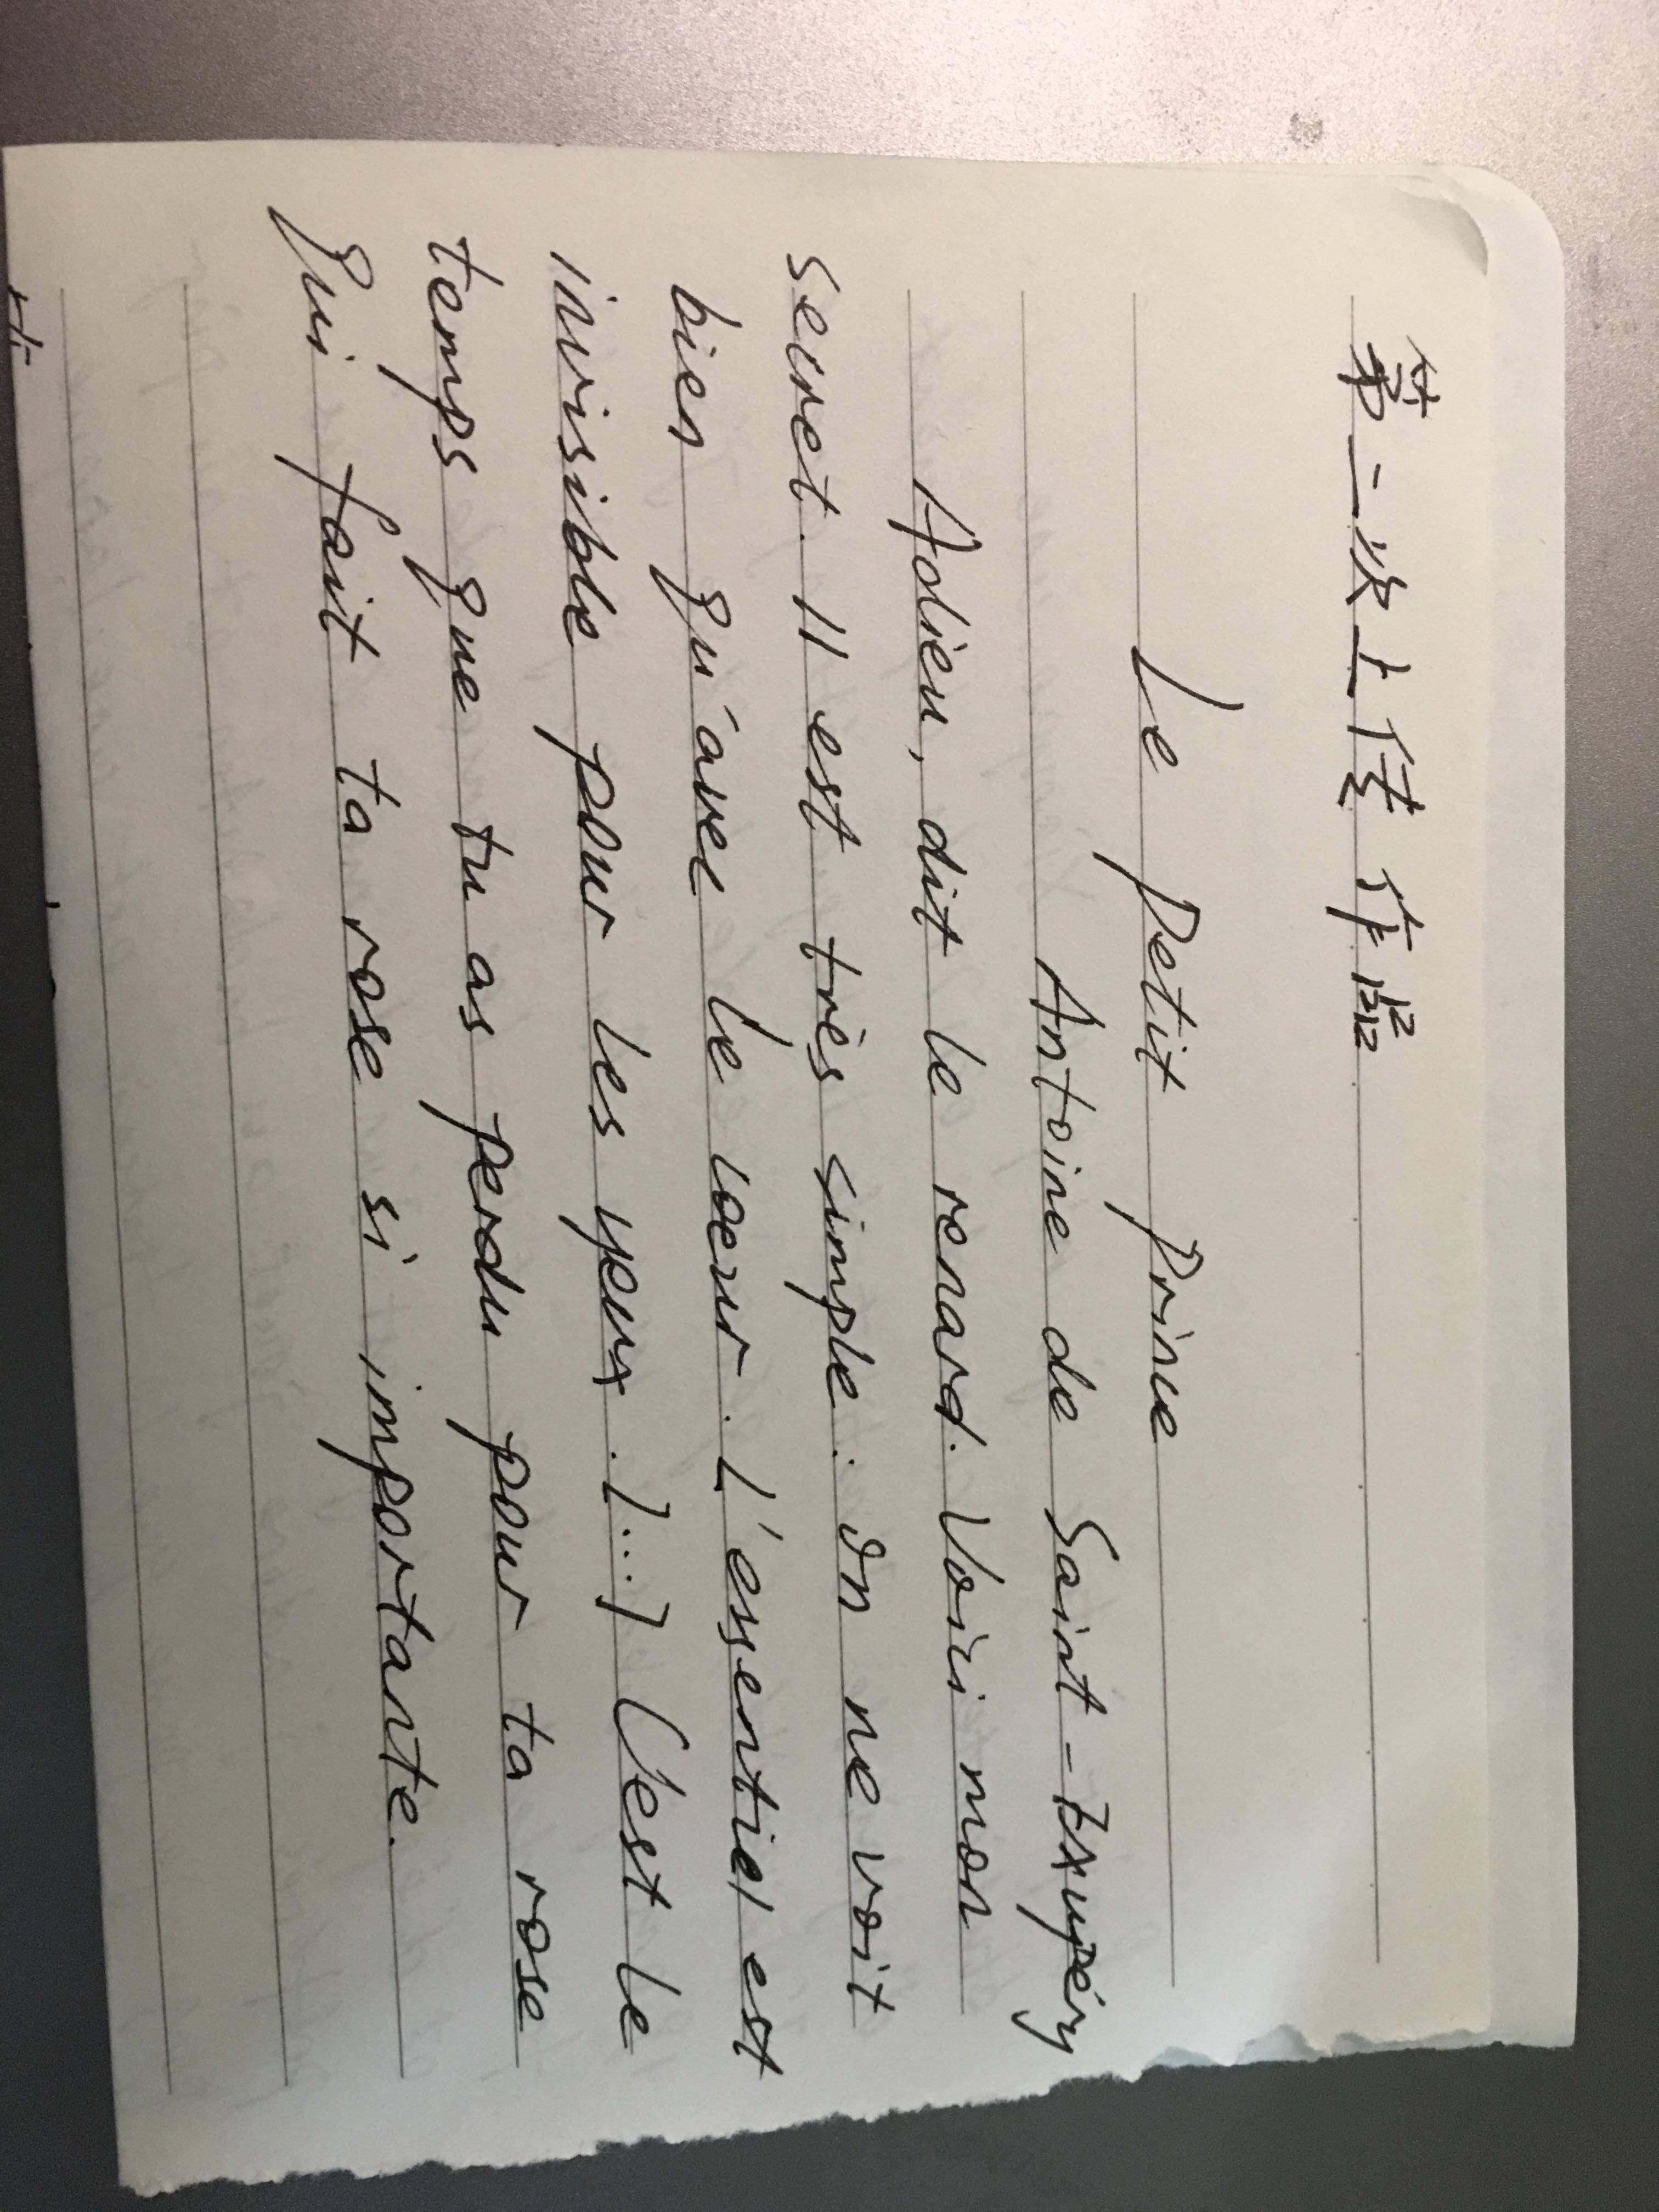 第一次上传作品
Le Petit Prince
Antoine de Saint-Exupéry
Adieu, dit le renard. Voici mon
secret. Il est très simple: on ne voit
bien qu'avec le coeur. L'essentiel est
invisible pour les yeux. [...] C'est le
temps que tu as perdu pour ta rose
qui fait ta rose si importante.